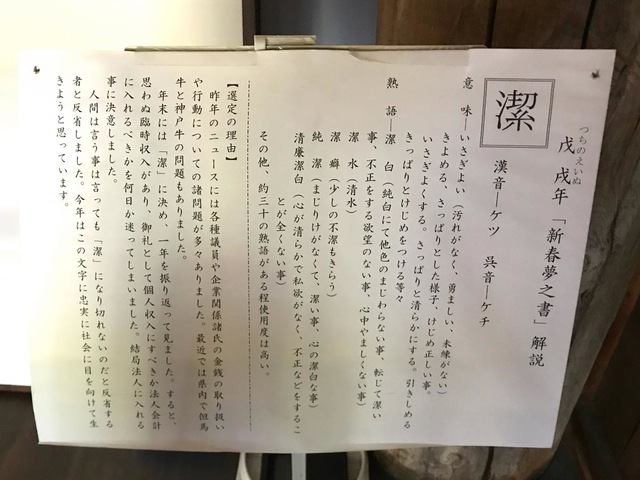 つちのえいぬ
戊戌年「新春夢之書」解説
潔
漢音―ケツ 呉音―ケチ
意味―いさぎよい（汚れがなく、勇ましい、未練がない）
きよめる、さっぱりとした様子、けじめ正しい事。
いさぎよくする。さっぱりと清らかにする。引きしめる
きっぱりとけじめをつける等々
熟語―潔 白（純白にて他色のまじわらない事、転じて潔い
事、不正をする欲望のない事、心中やましくない事）
潔 水（清水）
潔 癖（少しの不潔もきらう）
純 潔（まじりけがなくて、潔い事、心の潔白な事）
清廉潔白（心が清らかで私欲がなく、不正などをするこ
とが全くない事）
その他、約三十の熟語がある程使用度は高い。
【選定の理由】
昨年のニュースには各種議員や企業関係諸氏の金銭の取り扱い
や行動についての諸問題が多々ありました。最近では県内で但馬
牛と神戸牛の問題もありました。
年末には「潔」に決め、一年を振り返って見ました。すると、
思わぬ臨時収入があり、御礼として個人収入にすべきか法人会計
に入れるべきかを何日か迷ってしまいました。結局法人に入れる
事に決意しました。
人間は言う事は言っても「潔」になり切れないのだと反省する
者と反省しました。今年はこの文字に忠実に社会に目を向けて生
きようと思っています。